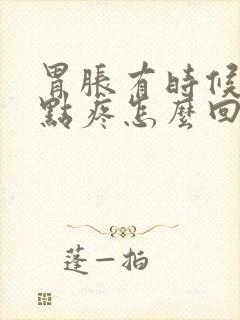 胃脹有時候
點疼怎麼回
蓬一拍